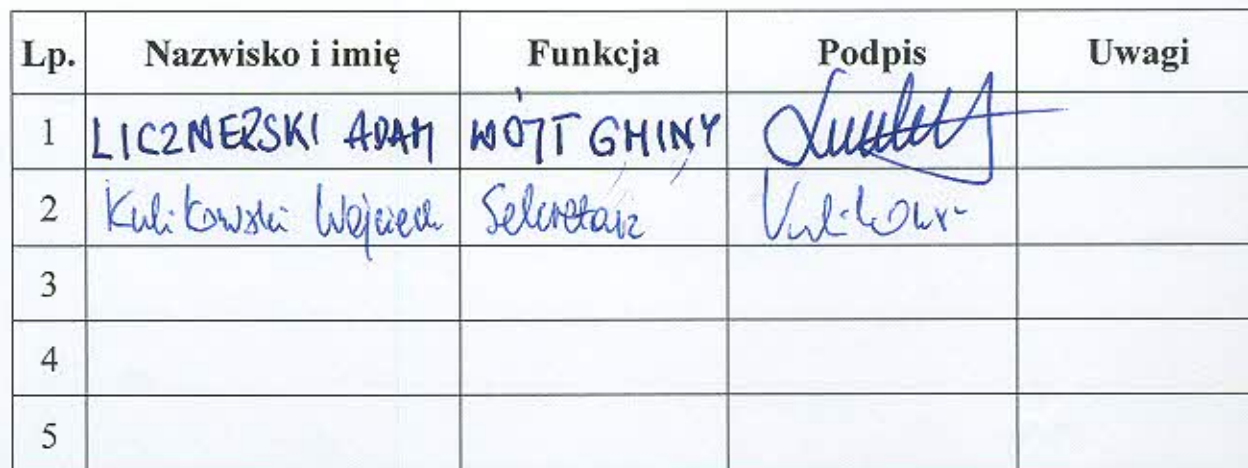 Lp. Nazwisko i imię Funkcja Podpis Uwagi
1 LICZNERSKI ADAM WÓJT GMINY
2 Kulikowski Wojciech Sekretarz
3
4
5